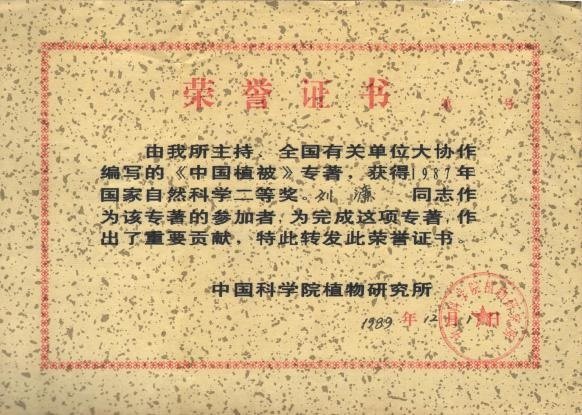 荣誉证书
第 号
由我所主持、全国有关单位大协作
编写的《中国植被》专著,获得1987年
国家自然科学二等奖。刘濂 同志作
为该专著的参加者,为完成这项专著,作
出了重要贡献,特此转发此荣誉证书。
中国科学院植物研究所
1989年12月1日